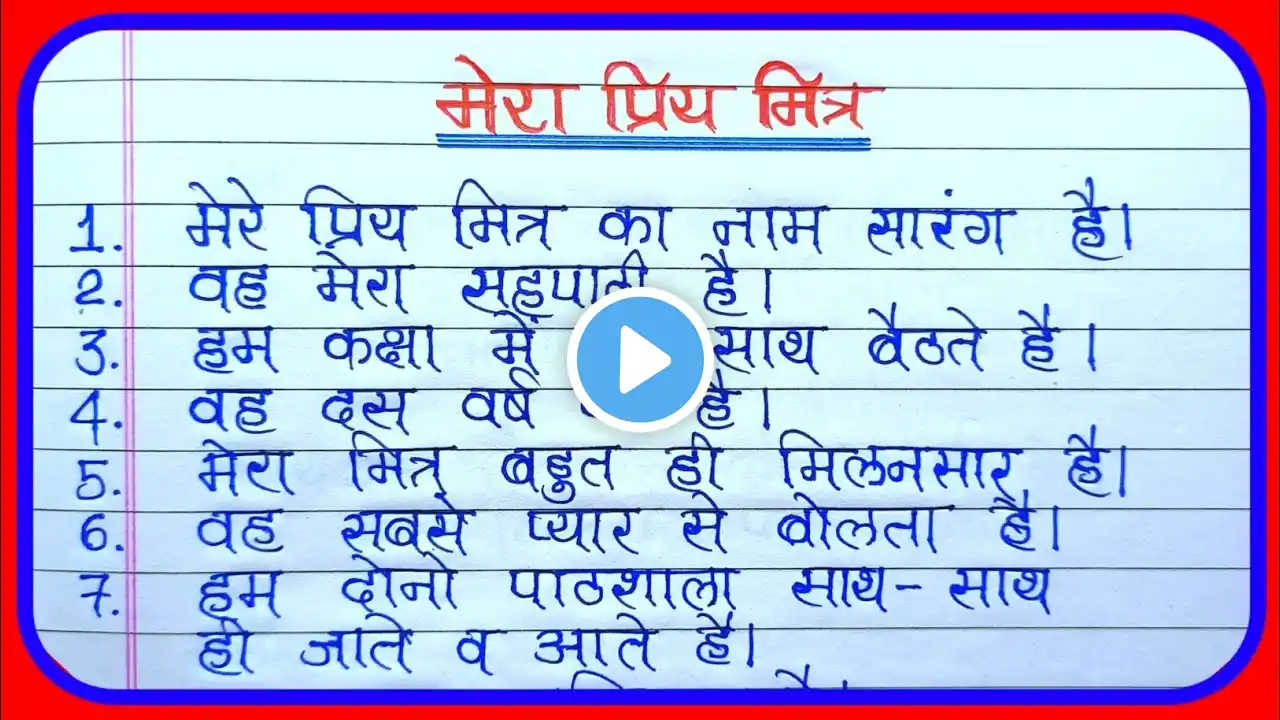 मेरा प्रिय मित्र
1. मेरे प्रिय मित्र का नाम सारंग है।
2. वह मेरा सहपाठी है।
3. हम कक्षा में साथ बैठते है।
4. वह दस वर्ष है।
5. मेरा मित्र बहुत ही मिलनसार है।
6. वह सबसे प्यार से बोलता है।
7. हम दोनो पाठशाला साथ-साथ
ही जाते व आते है।